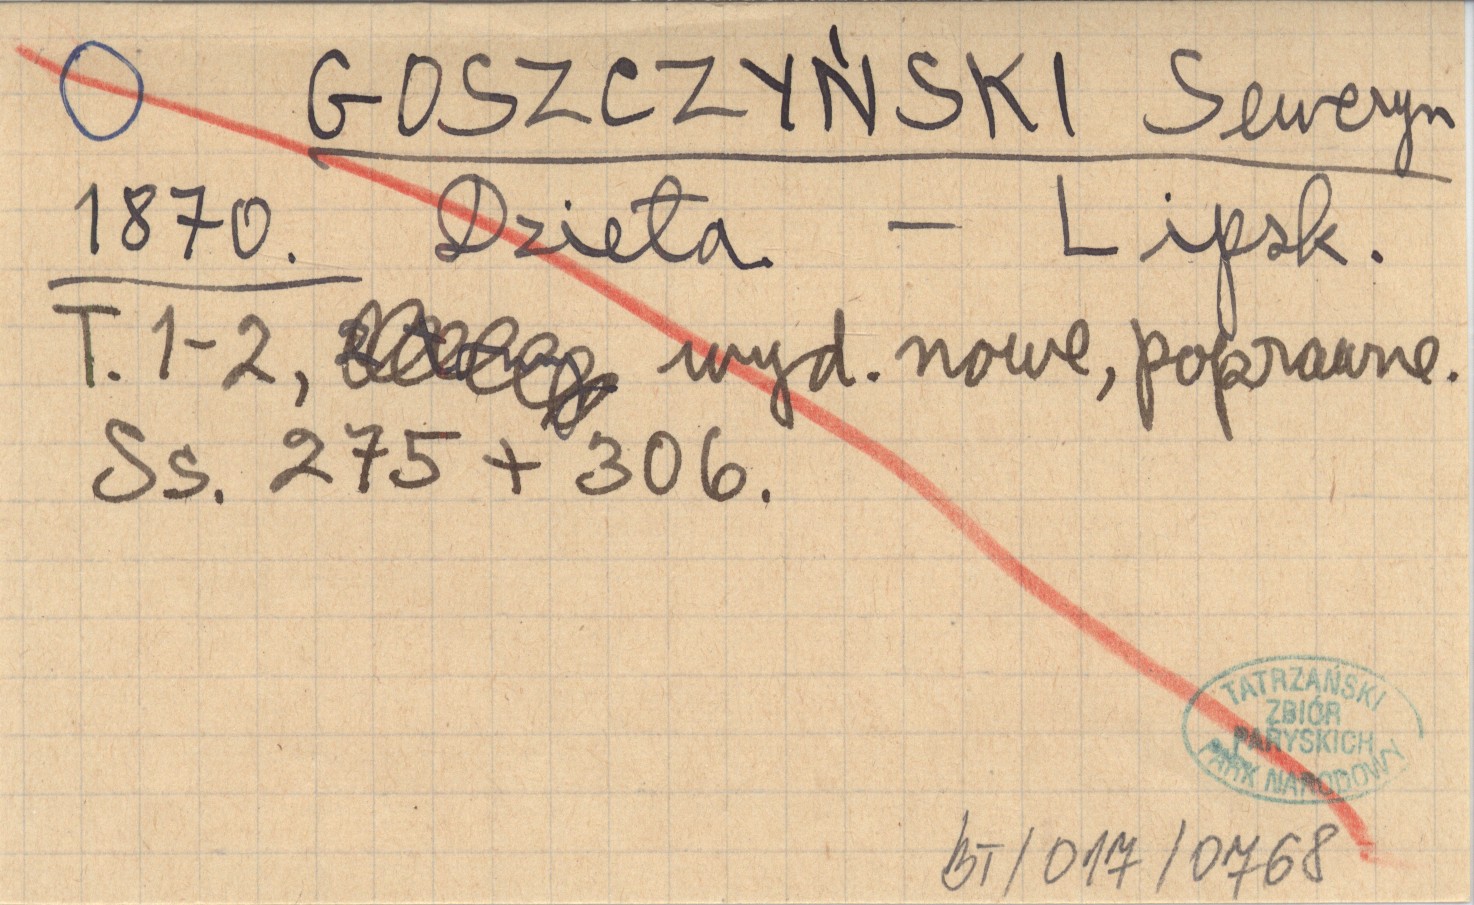 GOSZCZYŃSKI Seweryn
1870. Dzieła - Lipsk.
T. 1-2, wyd. nowe, poprawne.
Ss. 275 + 306.
TATRZAŃSKI
ZBIÓR
PARYSKICH
PARK NARODOWY
BT/017/0768